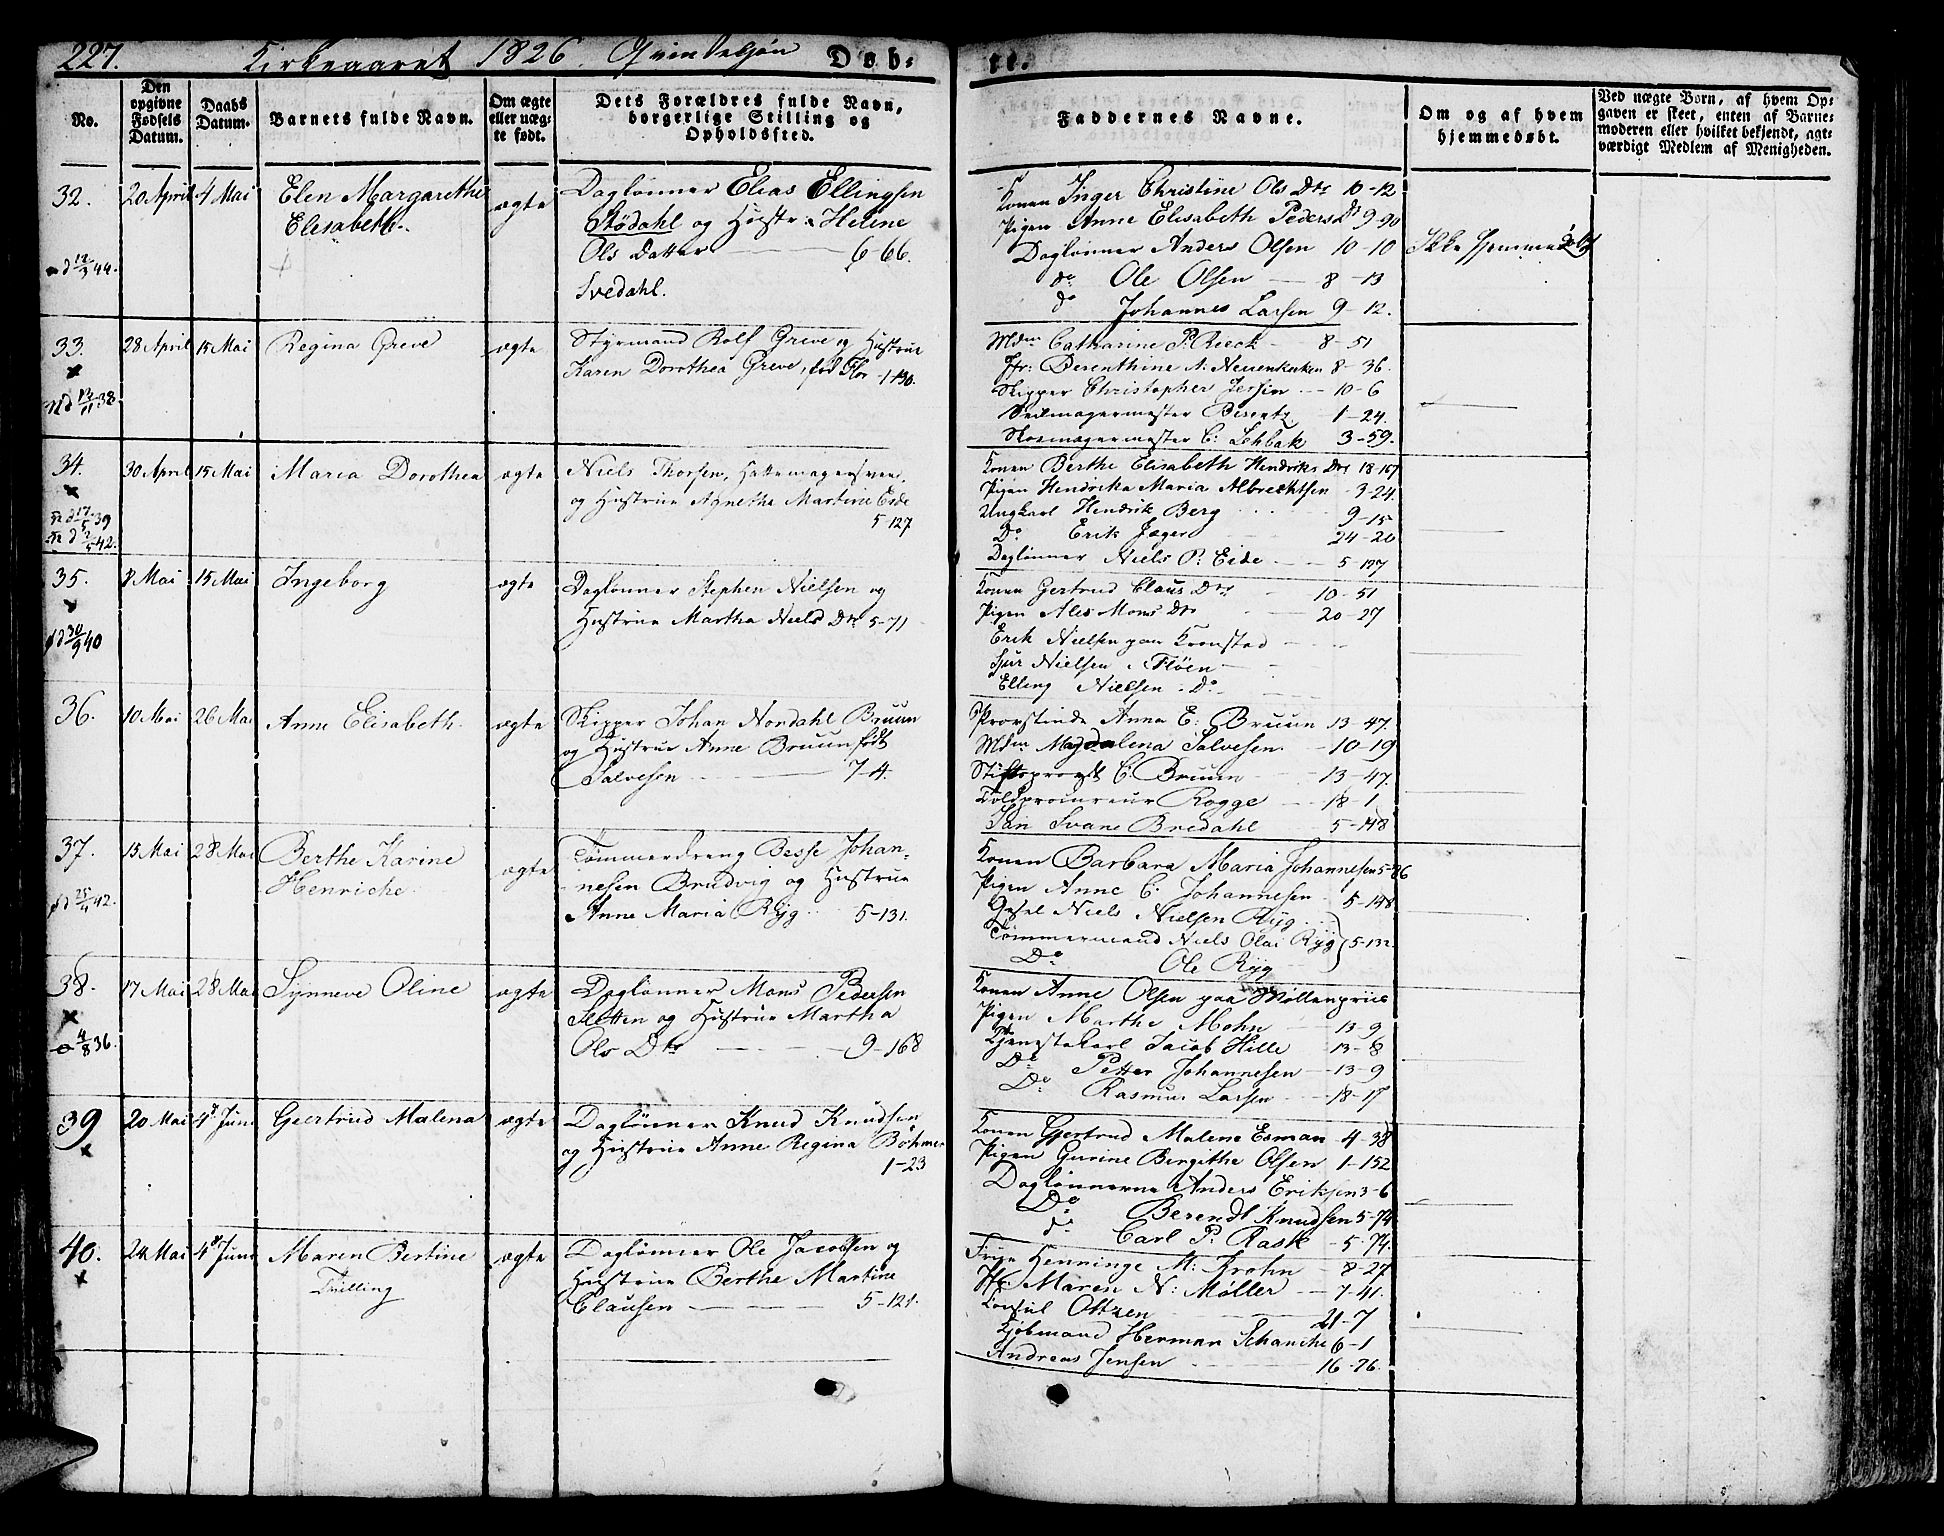 227. Kirkeaaret 1826. Qvindekjøn Døb-
te.
No.
Den opgivne Fødsels Datum.
Daabs Datum.
Barnets fulde Navn.
Om ægte eller uægte født.
Dets Forældres fulde Navn, borgerlige Stilling og Opholdssted.
Faddernes Navne.
Om og af hvem hjemmedøbt.
Ved uægte Børn, af hvem Opgaven er skeet, enten af Barnemoderen eller hvilket bekjendt, agtværdigt Medlem af Menigheden.
32. 20 April 4 Mai Elen Margarethe ægte Daglønner Elias Ellingsen
Elisabeth. Stødahl og Hustr: Helene
Ols Datter 6-66.
Svedahl.
Konen Inger Christine Ols Dtr 10-12
Pigen Anne Elisabeth Peders Dr 9-90
Daglønner Anders Olsen 10-10 Ikke hjemmedøbt
do Ole Olsen 8-13
do Johannes Larsen 9-12.
33. 28 April 15 Mai Regina Greve ægte Styrmand Rolf Greve og Hustrue
Karen Dorothea Greve, fød Flor 1-130.
Mdm Catharine P. Reeck 8-51
Jfr: Berenthine A: Neuenkirken 8-36.
Skipper Christopher Jersin 10-6
Seilmagermester Berentz 1-24.
Skomagermester C: Lehbak 3-59.
34. 30 April 15 Mai Maria Dorothea ægte Niels Thorsen, Hattemagersvend,
og Hustrue Agnetha Martine Eide
5-127
Konen Berthe Elisabeth Hendriks Dtr 18-167
Pigen Hendrika Maria Albrechtsen 3-24.
Ungkarl Hendrik Berg 9-15
Do Erik Jæger 24-20
Daglønner Niels P: Eide 5-127
35. 8 Mai 15 Mai Ingeborg ægte Daglønner Stephen Nielsen og
Hustrue Martha Niels Dtr 5-71
Konen Gertrud Claus Dtr 10-51
Pigen Ales Mons Dtr 20-27
Erik Nielsen paa Kronstad
Sjur Nielsen i Fløen
Elling Nielsen Do
36. 10 Mai 26 Mai Anne Elisabeth. ægte Skipper Johan Nordahl Bruun
og Hustrue Anne Bruun født
Salvesen 7-4.
Provstinde Anna E: Bruun 13-47.
Mdm Magdalena Salvesen. 10-19
Stiftsprovst C: Bruun 13-47.
Toldprocureur Rogge 18-1
Jan Svane Bredahl 5-148
37. 15 Mai 28 Mai Berthe Karine ægte Tømmerdreng Besse Johan-
Henriche nesen Brudvig og Hustrue
Anne Maria Ryg 5-131.
Konen Barbara Maria Johannesen 5-86
Pigen Anne C. Johannesen 5-148.
Gesel Niels Nielsen Ryg
Tømmermand Niels Olai Ryg 5-132.
Do Ole Ryg
38. 17 Mai 28 Mai Synneve Oline ægte Daglønner Mons Pedersen
Sletten og Hustrue Martha
Ols Dtr 9-168
Konen Anne Olsen paa Møllenpriis
Pigen Marthe Mohn 13-9
Tjenestekarl Jacob Hille 13-8
Do Petter Johannesen 13-9
Do Rasmus Larsen 18-17
39 20 Mai 4 Juni Geertrud Malena ægte Daglønner Knud Knudsen
og Hustrue Anne Regina Böhmer
1-23
Konen Gjertrud Malene Esman 4-38
Pigen Gurine Birgithe Olsen 1-152
Daglønnerne Anders Eriksen 3-6
Do Berendt Knudsen 5-74
do Carl P: Rask 5-74.
40. 24 Mai 4 Juni Maren Bertine ægte Daglønner Ole Jacobsen og
Tvilling Hustrue Berthe Martine
Clausen 5-121.
Frue Henninge M: Krohn 8-27
Jfr. Maren N: Møller 7-41.
Konsul Oltzen 21-7
Kjøbmand Herman Schanche 6-1
Andreas Jensen 16-76.